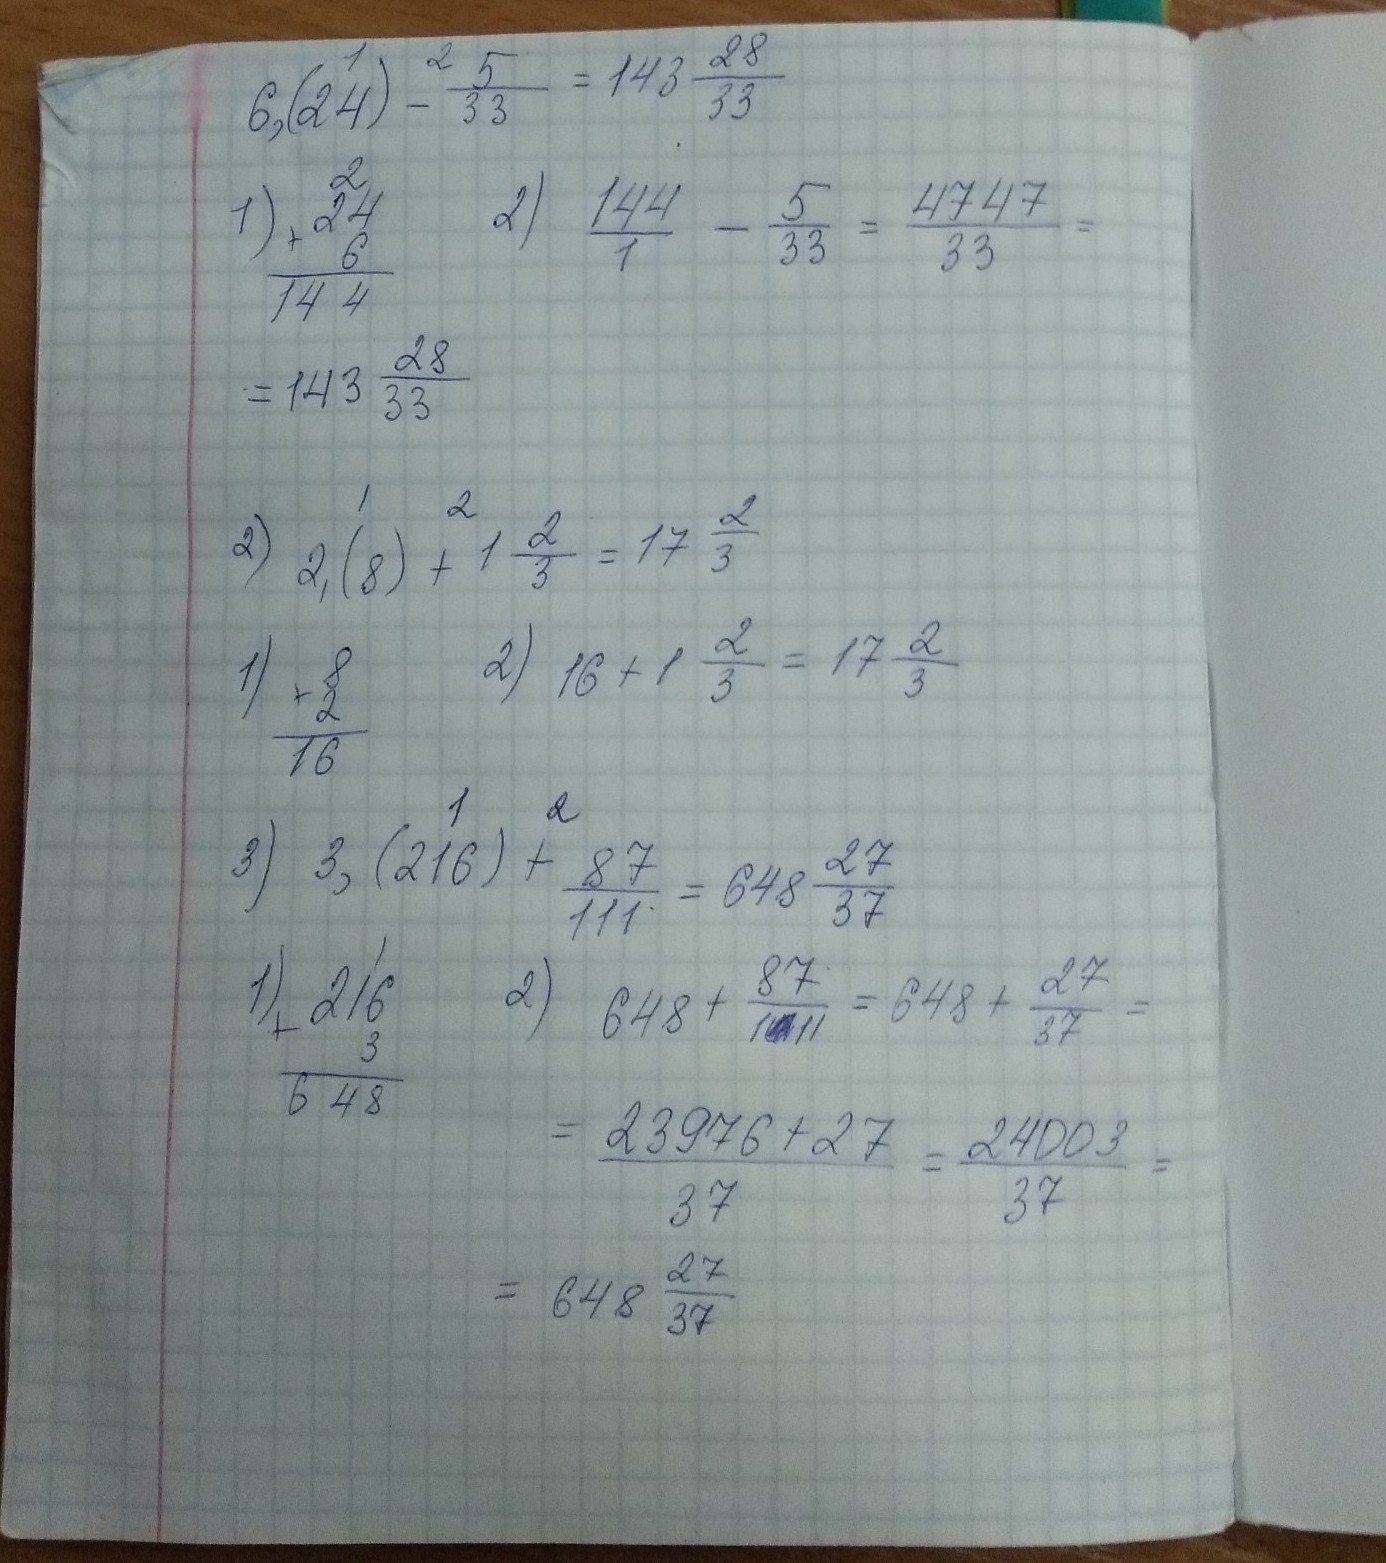 6,(24) - 5/33 = 143 28/33
1 2
1) 24 + 6 144 2) 144/1 - 5/33 = 4747/33 =
2
= 143 28/33
1 2
2) 2,(8) + 1 2/3 = 17 2/3
1) 8 + 2 16 2) 16 + 1 2/3 = 17 2/3
1 2
3) 3,(216) + 87/111 = 648 27/37
1
1) 216 + 3 648 2) 648 + 87/111 = 648 + 27/37 =
= 23976+27/37 = 24003/37 =
= 648 27/37